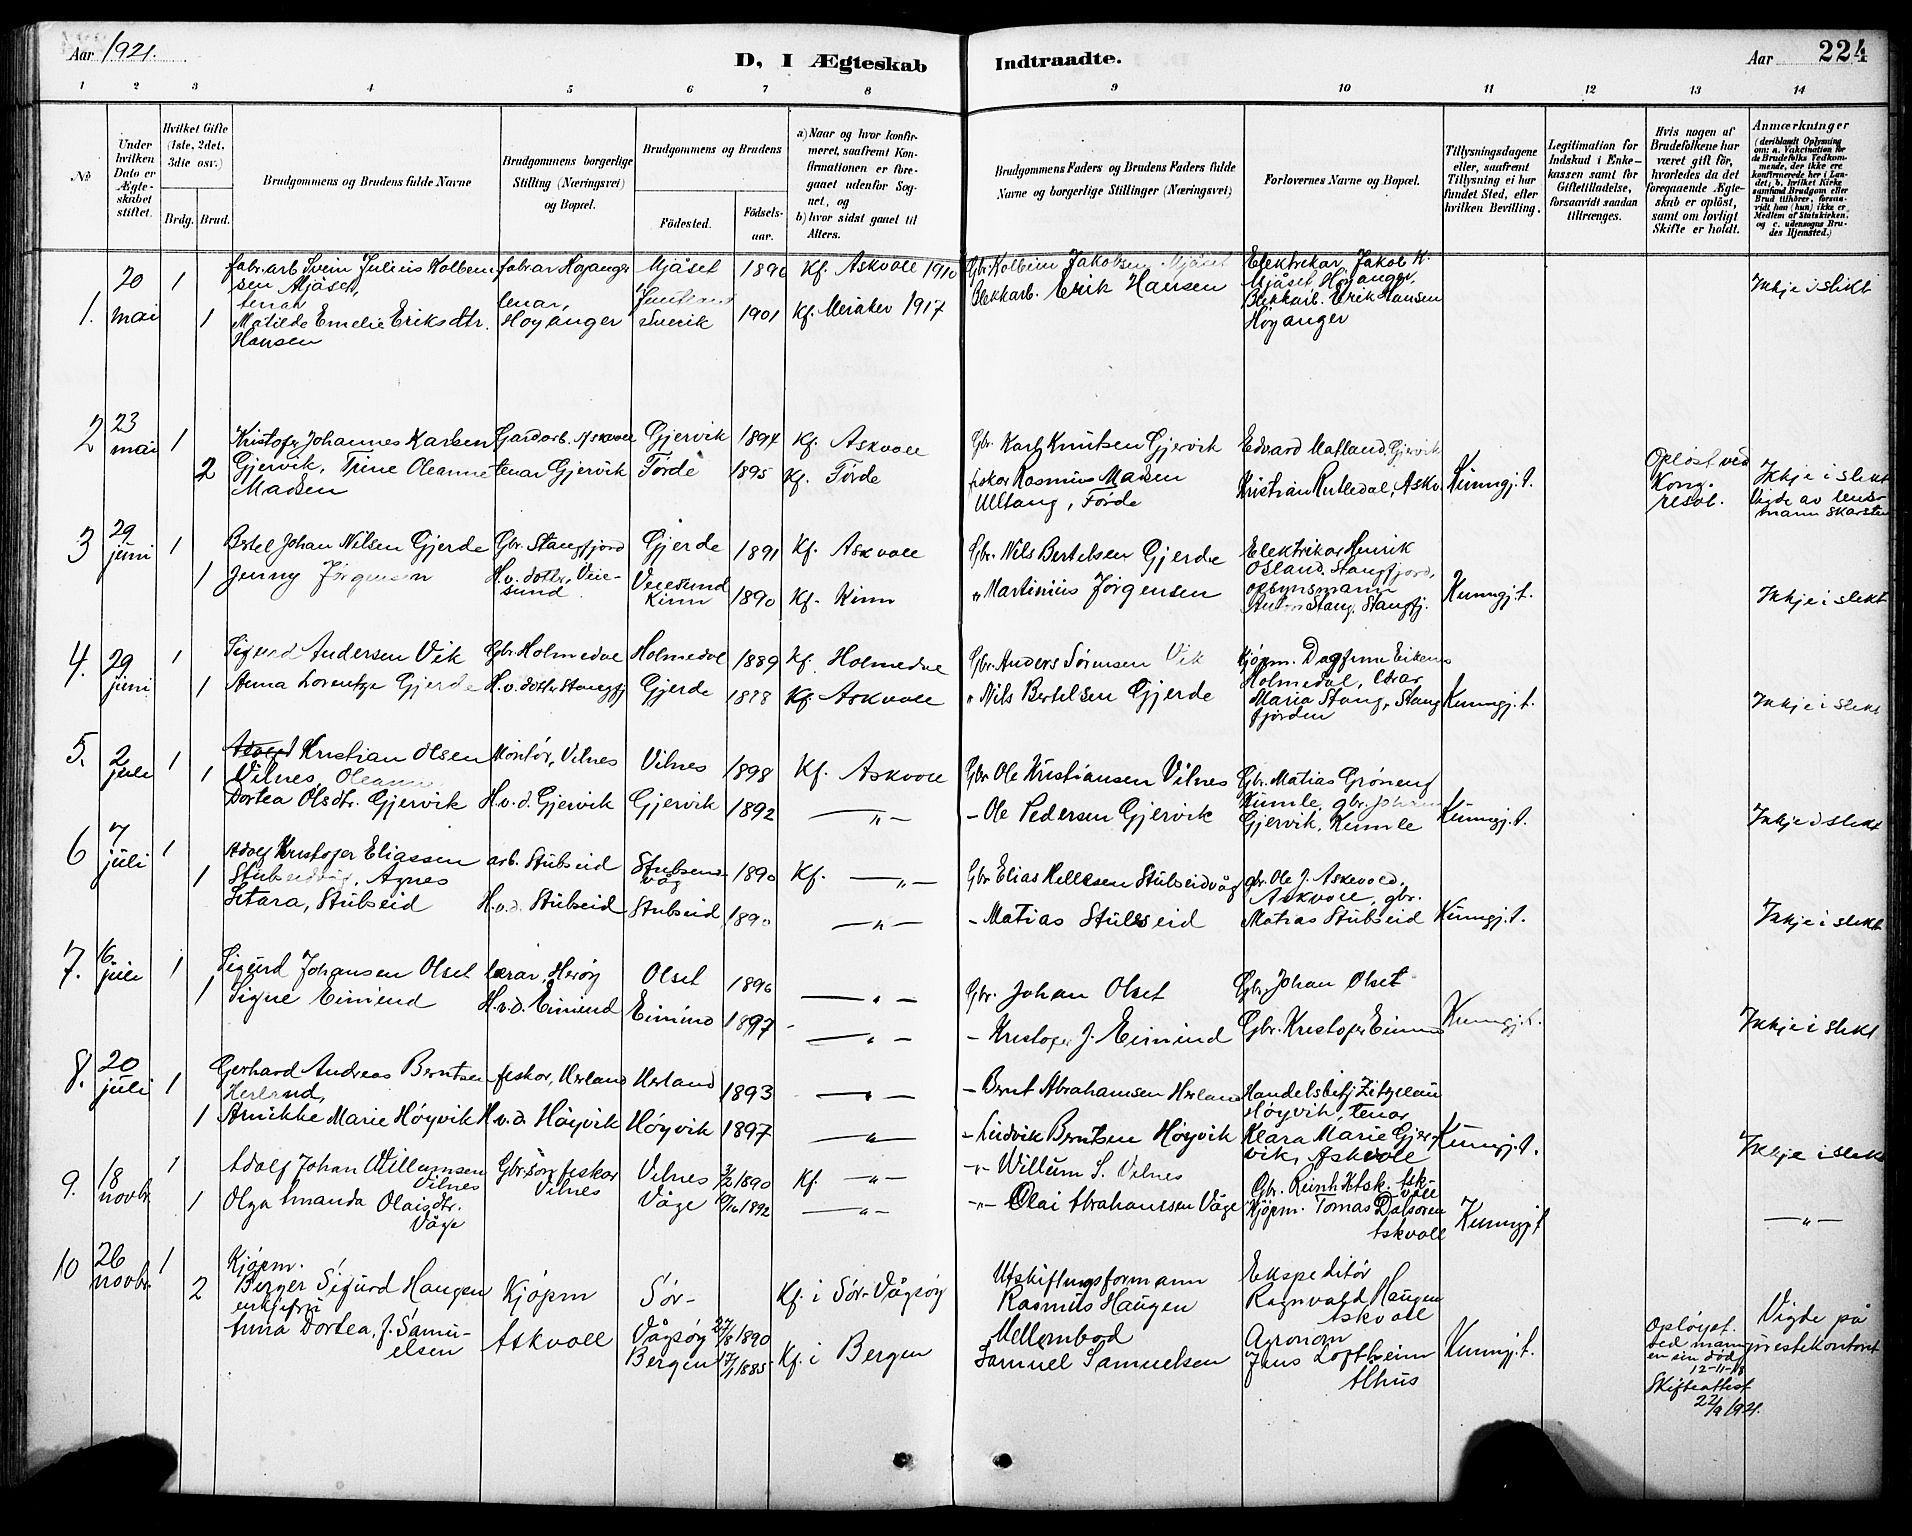 Aar 1921.
D, I Ægteskab Indtraadte.
Aar 224
1 2 3 4 5 6 7 8 9 10 11 12 13 14
No
Under hvilken Dato er Ægteskabet stiftet.
Hvilket Gifte (1ste, 2det, 3die osv.)
Brdg. Brud.
Brudgommens og Brudens fulde Navne
Brudgommens borgerlige Stilling (Næringsvei) og Bopæl.
Brudgommens og Brudens
Födested. Födselsaar.
a) Naar og hvor konfirmeret, saafremt Konfirmationen er foregaaet udenfor Sognet, og
b) hvor sidst gaaet til Alters.
Brudgommens Faders og Brudens Faders fulde Navne og borgerlige Stillinger (Næringsvei)
Forlovernes Navne og Bopæl.
Tillysningsdagene eller, saafremt Tillysning ei har fundet Sted, efter hvilken Bevilling.
Legitimation for Indskud i Enkekassen samt for Giftetilladelse, forsaavidt saadan tiltrænges.
Hvis nogen af Brudefolkene har været gift för, hvorledes da det foregaaende Ægteskab er oplöst, samt om lovligt Skifte er holdt.
Anmærkninger (deriblandt Oplysning om: a. Vaccination for de Brudefolks Vedkommende, der ikke ere konfirmerede her i Landet; b. hvilket Kirkesamfund Brudgom eller Brud tilhörer, forsaavidt han (hun) ikke er Medlem af Statskirken, og c. udensogns Brudes Hjemsted.)
1. 20 mai 1 fabr.arb Svein Julius Kolbeinsen Mjåset, fabr.ar Høyanger Mjåset 1890 Kf. Askvoll 1910 Gbr. Kolbein Jakobsen Mjåset Elektrikar Jakob K. Mjåset, Høyanger, Ikkje i slekt
1 tenar Matilde Emelie Eriksdtr. Hansen tenar, Høyanger Sverik 1901 Kf. Meraker 1917 Blekkarb. Erik Hansen Blekkarb. Erik Hansen Høyanger
2 23 mai 1 Kristofer Johannes Karlsen Gjervik, Gardarb. Askvoll Gjervik 1894 Kf. Askvoll Gbr. Karl Knutsen Gjervik Edvard Matland, Gjervik
2 Trine Oleanne Madsen tenar Gjervik Førde 1895 Kf. Førde fiskar Rasmus Madsen Ulltang, Førde Kristian Rutledal, Askv. Kunngj. t. Opløst ved Kong. resol. Ikkje i slekt Vigde av lensmann Skarstein
3 29 juni 1 Bertel Johan Nilsen Gjerde Gbr. Stangfjord Gjerde 1891 Kf. Askvoll Gbr. Nils Bertelsen Gjerde Elektrikar Henrik Osland, Stangfjord,
1 Jenny Jørgensen H.v. dotter, Veiesund Veiesund Kinn 1890 Kf. Kinn " Martinius Jørgensen opsynsmann Anton Stang, Stangfj. Kunngj. t. Ikkje i slekt
4. 29 juni 1 Sigurd Andersen Vik Gbr. Holmedal Holmedal 1889 Kf. Holmedal Gbr. Anders Sørensen Vik Kjøpm. Dagfinn Eikenes Holmedal,
1 Anna Lorentze Gjerde H.v. dotter Stangfj Gjerde 1888 Kf. Askvoll " Nils Bertelsen Gjerde Maria Stang, Stangfjorden Kunngj. t. Ikkje i slekt
5. 2 juli 1 Kristian Olsen Vilnes, Montør, Vilnes Vilnes 1898 Kf. Askvoll Gbr Ole Kristiansen Vilnes Gbr. Matias Grøneng Kumle,
1 Oleanna Dortea Olsdtr. Gjervik H.v.d. Gjervik Gjervik 1892 — " — - Ole Pedersen Gjervik gbr. Johan Gjervik, Kumle Kunngj. t. Ikkje i slekt
6 7 juli 1 Adolf Kristofer Eliassen Stubseidvåg, arb. Stubseid Stubseidvåg 1890 Kf. — " — Gbr Elias Hellesen Stubseidvåg gbr. Ole J. Askevold, Askvoll,
1 Agnes Sitara, Stubseid H.v.d. Stubseid Stubseid 1890 — " — - Matias Stubseid gbr. Matias Stubseid Kunngj. t. Ikkje i slekt
7. 16 juli 1 Sigurd Johansen Olset lærar, Herøy Olset 1896 — " — Gbr. Johan Olset Gbr. Johan Olset
1 Signe Eimind H.v.d. Eimind Eimind 1897 — " — - Kristofer J. Eimind Gbr. Kristofer Eimind Kunngj. t. Ikkje i slekt
8. 20 juli 1 Gerhard Andreas Berntsen Herland, fiskar, Herland Herland 1893 — " — - Bernt Abrahamsen Herland Handelsbetj Høyvik,
1 Anikke Marie Høyvik H.v.d. Høyvik Høyvik 1897 — " — - Ludvik Berntsen Høyvik tenar Klara Marie Gjervik, Askvoll Kunngj. t. Ikkje i slekt
9. 18 novbr. 1 Adolf Johan Willumsen Vilnes Gbr.søn, fiskar Vilnes Vilnes 3/2 1890 Kf. — " — - " - Willum S. Vilnes Gbr. Reinh. Askvoll
1 Olga Amanda Olaisdtr. Våge Våge 10/10 1892 — " — - " - Olai Abrahamsen Våge Kjøpm. Tomas Dalsøren Askvoll Kunngj. t — " —
10 26 novbr. 1 Kjøpm. Birger Sigurd Haugen Kjøpm Askvoll Sør-Vågsøy 27/8 1890 Kf. i Sør-Vågsøy Utskiftingsformann Rasmus Haugen Ekspeditør Ragnvald Haugen Askvoll
2 enkjefrú Anna Dortea, f. Samuelsen Bergen 17/1 1885 Kf. i Bergen Samuel Samuelsen Agronom Jens Loftheim Alhus Kunngj. t. Opløyst ved mannen sin død 12-11-18 Skifteattest 22/9 1921. Vigde på prestekontoret